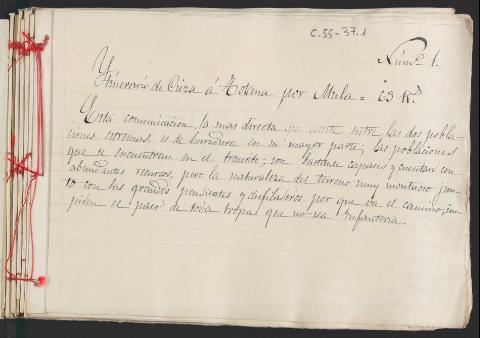 C.55-37.1
Núm.º 1.
Ytinerario de Cieza á Totana por Mula = 63 K.s
Esta comunicacion, la mas directa que existe entre las dos pobla-
ciones estremas, es de herradura en su mayor parte; las poblaciones
que se encuentran en el transito, son bastante capaces y cuentan con
abundantes recursos, pero la naturaleza del terreno muy montuoso jun-
to con las grandes pendientes y desfiladeros por que va el camino, im-
piden el paso de toda tropa que no sea Ynfanteria.